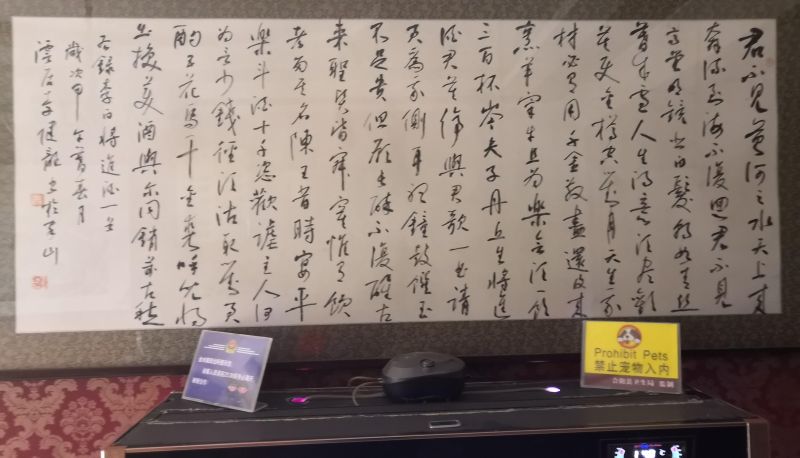 君不見黄河之水天上来
奔流到海不復回君不見
高堂明鏡悲白髮朝如青丝
暮成雪人生得意須盡歡
莫使金樽空對月天生我
材必有用千金散盡還復来
烹羊宰牛且為樂會須一飲
三百杯岑夫子丹丘生將進
酒君莫停與君歌一曲請
君為我側耳聽鐘鼓饌玉
不足貴但願長醉不復醒古
来聖賢皆寂寞惟有飲
者留其名陳王昔時宴平
樂斗酒十千恣歡謔主人何
為言少錢徑須沽取對君
酌五花馬千金裘呼兒將
出換美酒與爾同銷萬古愁
右錄李白將進酒一首
歲次甲午春月
Prohibit Pets
禁止宠物入内
卫生局 监制